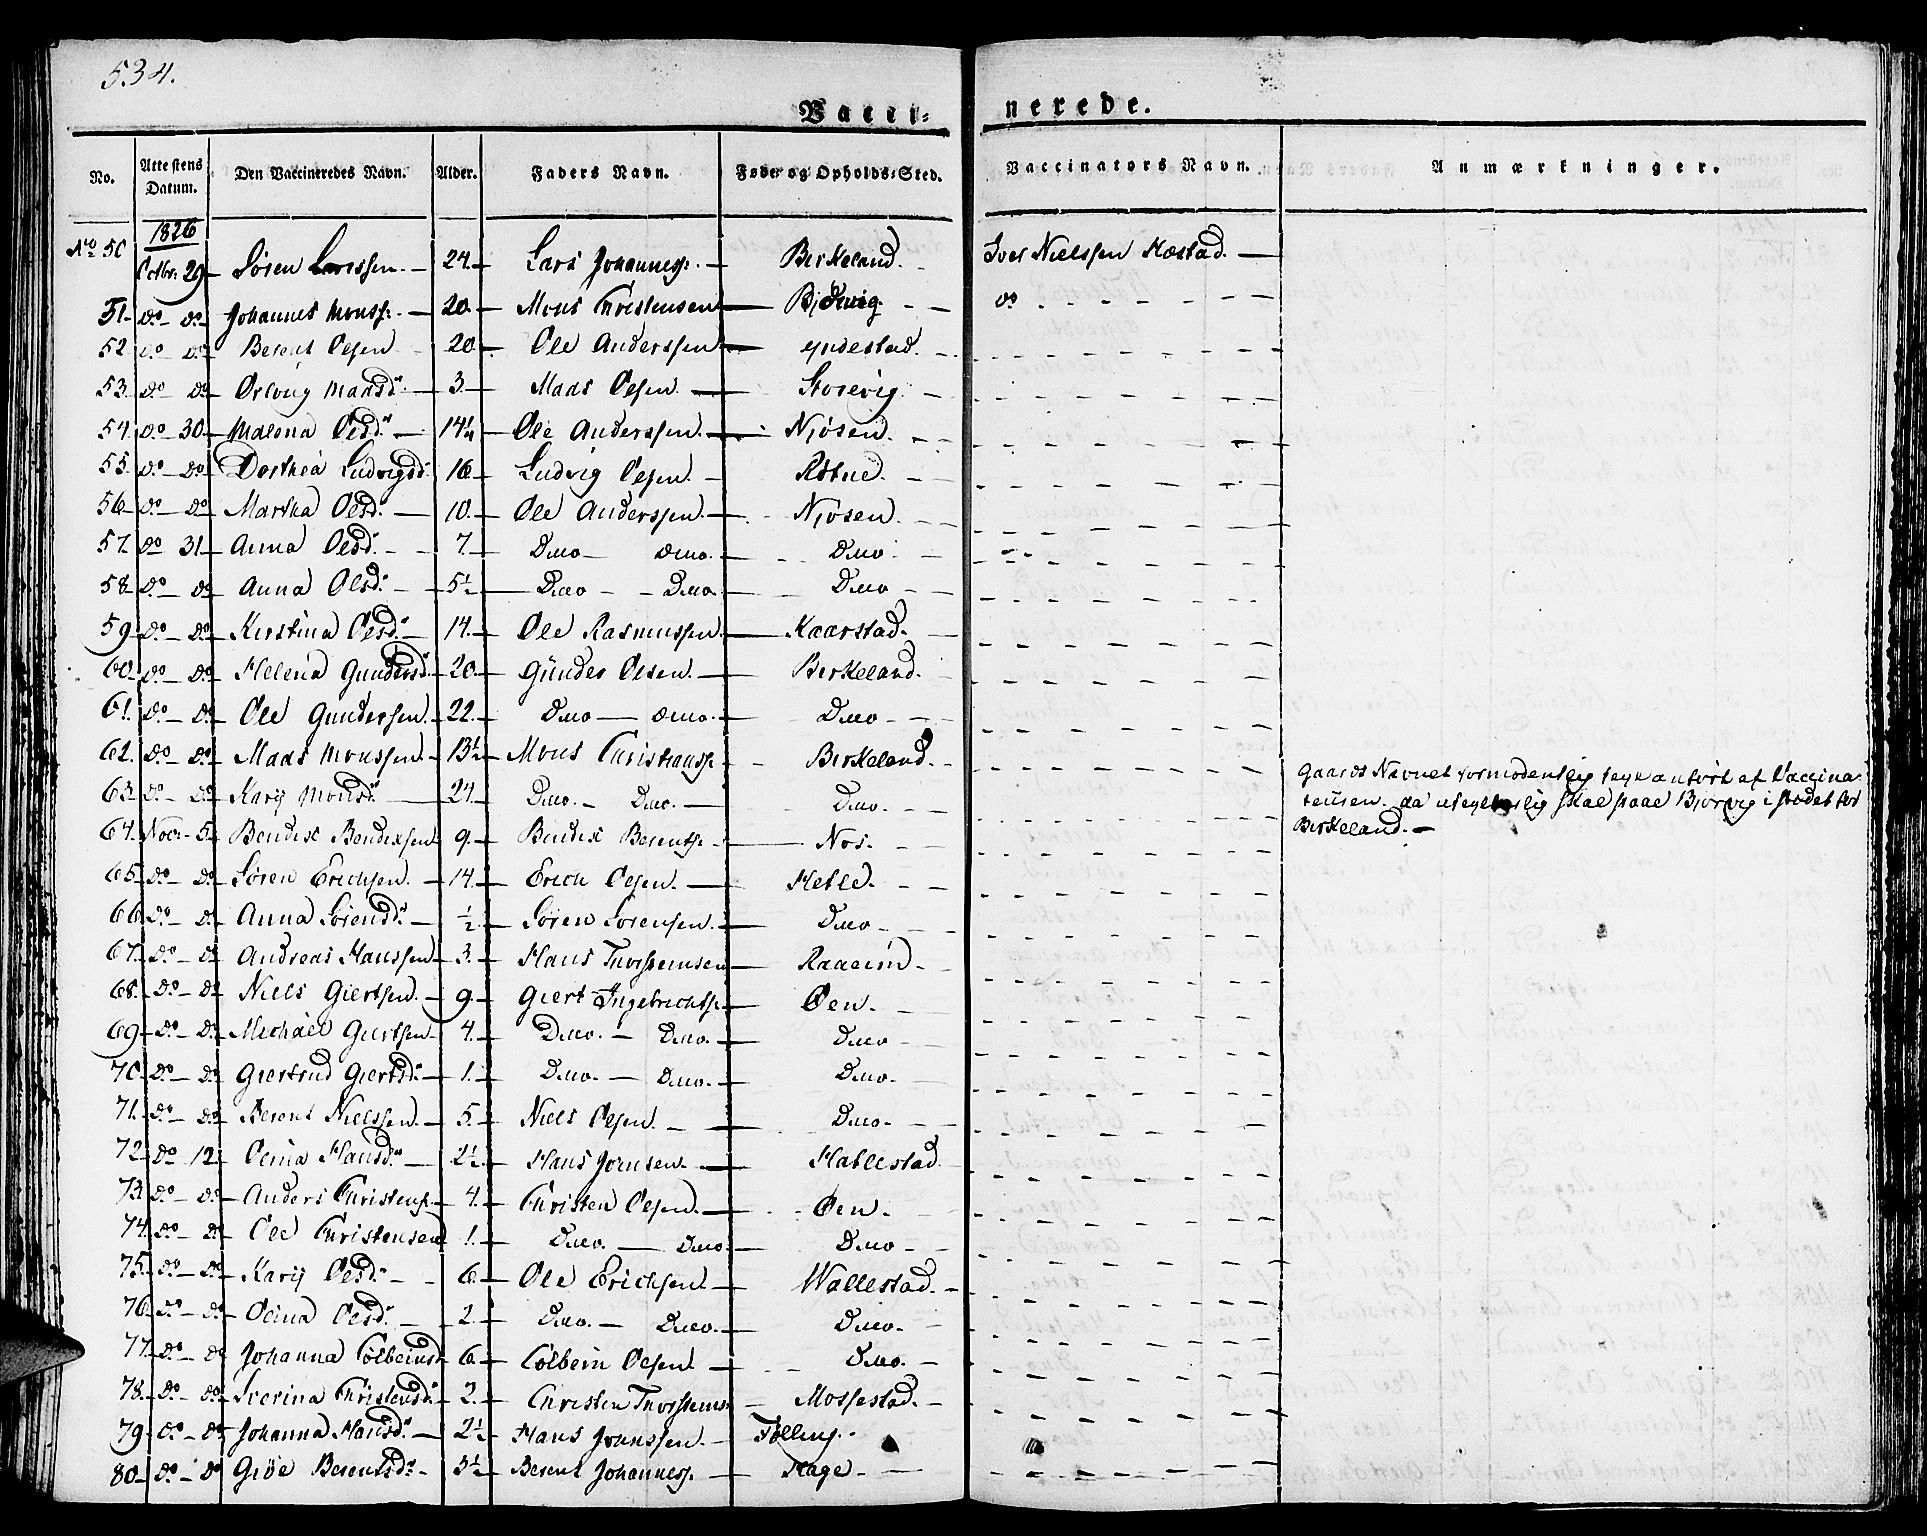 534.
Vacci=
nerede.
No. Attestens Datum. Den Vaccineredes Navn. Alder. Faders Navn. Føde- og Opholds-Sted. Vaccinators Navn. Anmærkninger.
1826
No 50 Octbr. 29 Søren Larssen. 24. Lars Johanness. Birkeland. Iver Nielssen Næstad.
51. do do Johannes Monss. 20. Mons Christensen Bjørvig do
52 do do Berent Olsen 20 Ole Anderssen Yndestad.
53. do do Maasdr. 3 Maas Olsen Storevig
54. do 30 Malena Olsdr. 14¼ Ole Anderssen. Njøsen
55. do do Dorthea Ludvigsd. 16 Ludvig Olsen.
56 do do Martha Olsdr. 10. Ole Anderssen. Njøsen
57. do 31 Anna Olsd. 7. Ditto ditto. Ditto
58 do do Anna Olsd. 5½ Ditto Ditto Ditto
59 do do Kirstina Olsd. 14. Ole Rasmussen Kaarstad.
60 do do Helena Gundersd. 20 Gunder Olsen. Birkeland.
61. do do Ole Gundersen. 22. Ditto ditto. Ditto
62. do do Maas Monssen. 13½ Mons Christianss. Birkeland.
63. do do Karij Monsd. 24 Ditto. Ditto. Ditto. Gaards Navnet formodentlig feyl anført af Vaccina-
teuren. da skal staae Bjørvig i stædet for
Birkeland.
64. Novr. 5 Bendix Bendixsen 9. Bendix Berents. Nos.
65 do do Søren Erichsen. 14. Erich Olsen. Hetle.
66 do do Anna Sørensd. ½ Søren Sørensen. Ditto
67. do do Andreas Hanssen 3. Hans Thorsteinsen
68. do do Niels Giertsen. 9. Giert Ingebrechts. Øen.
69 do do Michael Giertsen 4. Ditto. Ditto. Ditto
70. do do Giertrud Giertsd. 1. Ditto. Ditto. Ditto.
71. do do Berent Nielssen. 5. Niels Olsen. Ditto.
72 do 12. Olina Hansd. 2½ Hans Jørnsen. Hatlestad
73 do do Anders Christens. 4. Christen Olsen. Øen.
74. do do Ole Christensen 1. Ditto. Ditto. Ditto
75. do do Karij Olsd. 6 Ole Erichsen. Wallestad.
76. do do Olina Olsd. 2. Ditto. Ditto. Ditto.
77. do do Johanna Colbeinsd. 6 Colbein Olsen Ditto.
78. do do Severina Christensd. 2. Christen Thorsteins. Mossestad.
79. do do Johanna Hansd. 2½ Hans Jonssen. Følling.
80 do do Giøe Berentsd. 3½ Berent Johanness. Hage